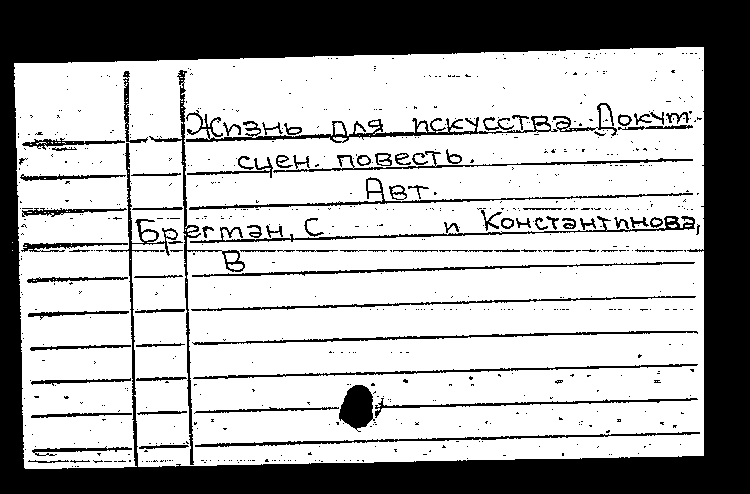 Жизнь для искусства. Докум.
сцен. повесть.
Авт.
Брегман, С и Константинова,
В